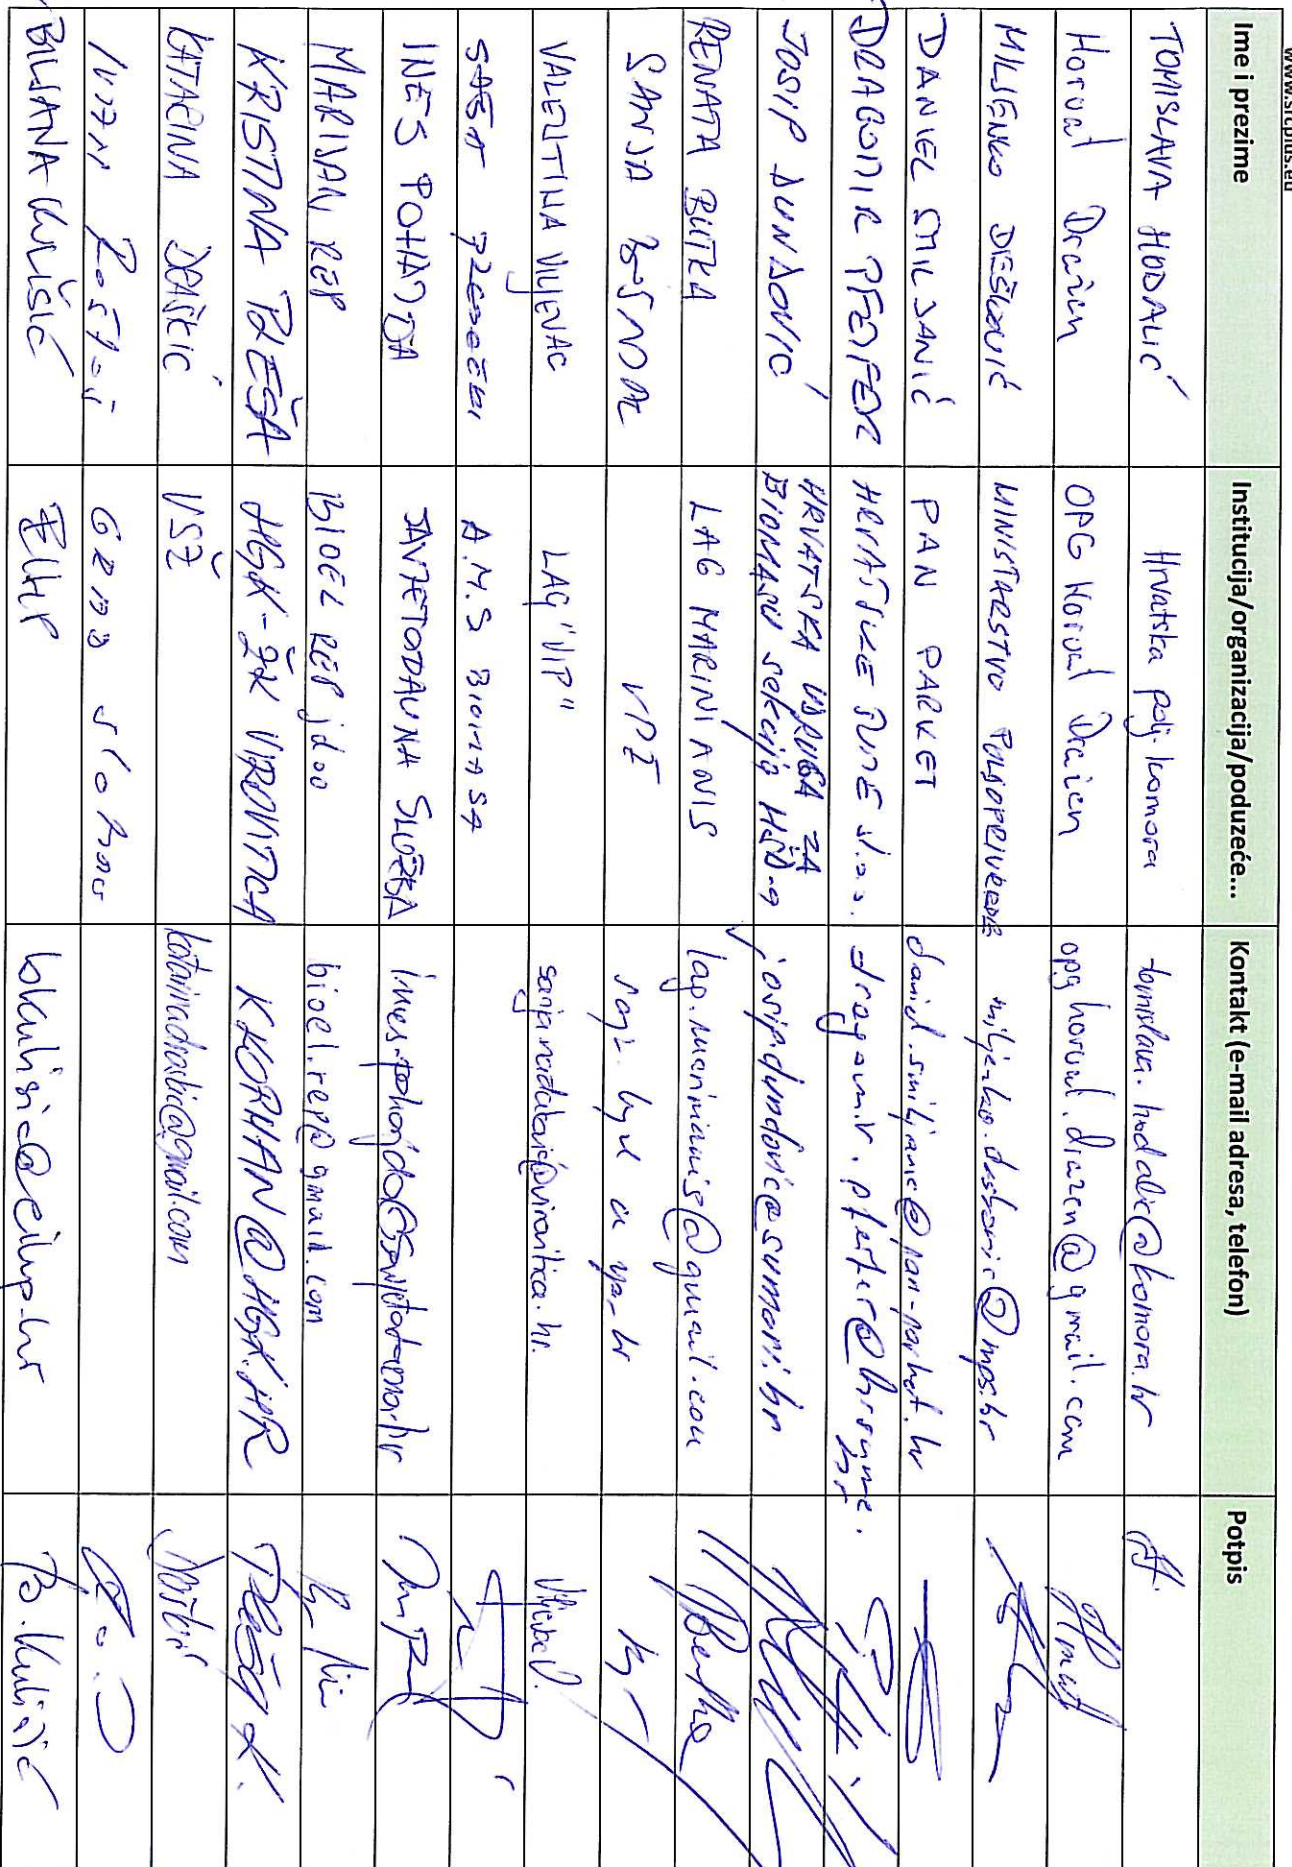 www.srcplus.eu
Ime i prezime Institucija/organizacija/poduzeće... Kontakt (e-mail adresa, telefon) Potpis
TOMISLAVA HODALIĆ Hrvatska polj. komora tomislava.hodalic@komora.hr
Horvat Dražen OPG Horvat Dražen opg horvat.drazen@gmail.com
MILJENKO DEŠKOVIĆ MINISTARSTVO POLJOPRIVREDE
DANIEL SMILJANIĆ PAN PARKET daniel.smiljanic@pan-parket.hr
DRAGOMIR PFEIFER HRVATSKE ŠUME d.o.o. dragomir.pfeifer@hrsume.
hr
JOSIP DUNDOVIĆ HRVATSKA UDRUGA ZA
BIOMASU sekcija HŠD-a josip.dundovic@sumari.hr
RENATA BUTKA LAG MARINIANIS lag.marinianis@gmail.com
SANJA VPŽ
VALENTINA VILJEVAC LAG "VIP"
SAŠA A.M.S BIOMASA
INES POHAJDA SAVJETODAVNA SLUŽBA ines.pohajda@savjetodavna.hr
MARIJAN REP BIOEL REP jdoo bioel.rep@gmail.com
KRISTINA PLEŠA HGK-ŽK VIROVITICA KKORHAN@HGK.HR PLEŠA K.
KATARINA DRAŠKIĆ VSŽ
BILJANA KULIŠIĆ EIHP bkulisic@eihp.hr B. Kulišić